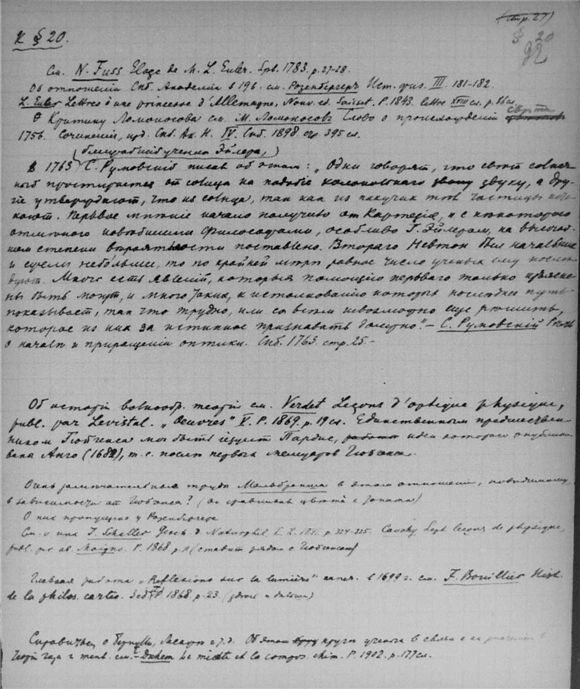 (стр. 27)
К § 20.
20
92
См. N. Fuss Eloge de M. L. Euler. Spb. 1783. p. 27-28.
Об отношении Спб. Академии в 19 в. см. Розенбергер Ист. физ. III. 181-182.
L. Euler Lettres à une princesse d'Allemagne, Nouv. ed. Saisset. P. 1843. lettre XVIII
О критику Ломоносова см. М. Ломоносов Слово о происхождении света
1756. Сочинения, изд. Спб. Ак. Н. IV. Спб. 1898. стр. 395 сл.
(ближайший ученик Эйлера,)
В 1763 С. Румовский писал об этом: „Одни говорят, что свет солнеч
ный простирается от солнца на подобие звуку, а дру
гие утверждают, что из солнца, так как из пахучих тел частицы
. Первое мнение начало получило от Картезия, и с некоторою
отменою новейшими философами, особливо Г. Эйлером, на высочай
шем степени вероятности поставлено. Втораго Невтон был начальник
и сумел небольшее, то по крайней мере равное число ученых ему послед
вуют. Много есть явлений, которыя помощию перваго только изъясне
ны быть могут, и много таких, к истолкованию которых последнее путь
показывает, так что трудно, или со всем невозможно еще решить,
которое из них за истинное признавать должно." — С. Румовский Речь
о начале и приращении оптики. Спб. 1763. стр. 25. —
Об истории волнообр. теорий см. Verdet Leçons d'optique physique,
publ. par Levistal. „Oeuvres" V. P. 1869. p. 19 сл. Единственным предшествен
ником Гюйгенса мог быть иезуит Пардис, идеи которого опублико
вана Анго (1682), т. е. после первых мемуаров Гюйгенса.
Очень замечательны труды Мальбранша в этом отношении, повидимому,
в зависимости от Гюйгенса? (он сравнивал цвета с тонами)
О них пропущено у Розенбергера
См. о них J. Schaller Gesch. d. Naturphil. I. 2. 1841. p. 324-325. Cauchy Sept leçons de physique,
publ. par ab. Moigno. P. 1868. p. (ставит рядом с Гюйгенсом)
Главная работа „Réflexions sur la lumière" напеч. в 1699 г. см. F. Bouillier Hist.
de la philos. cartés. 3 ed. 1868. p. 23.
Справиться о Бернулли, Лесаже и т. д. Об этом круге ученых в связи с
теорий газа и тепл. см. — Duhem Le mixte et la combin. chim. P. 1902. p. 177 сл.